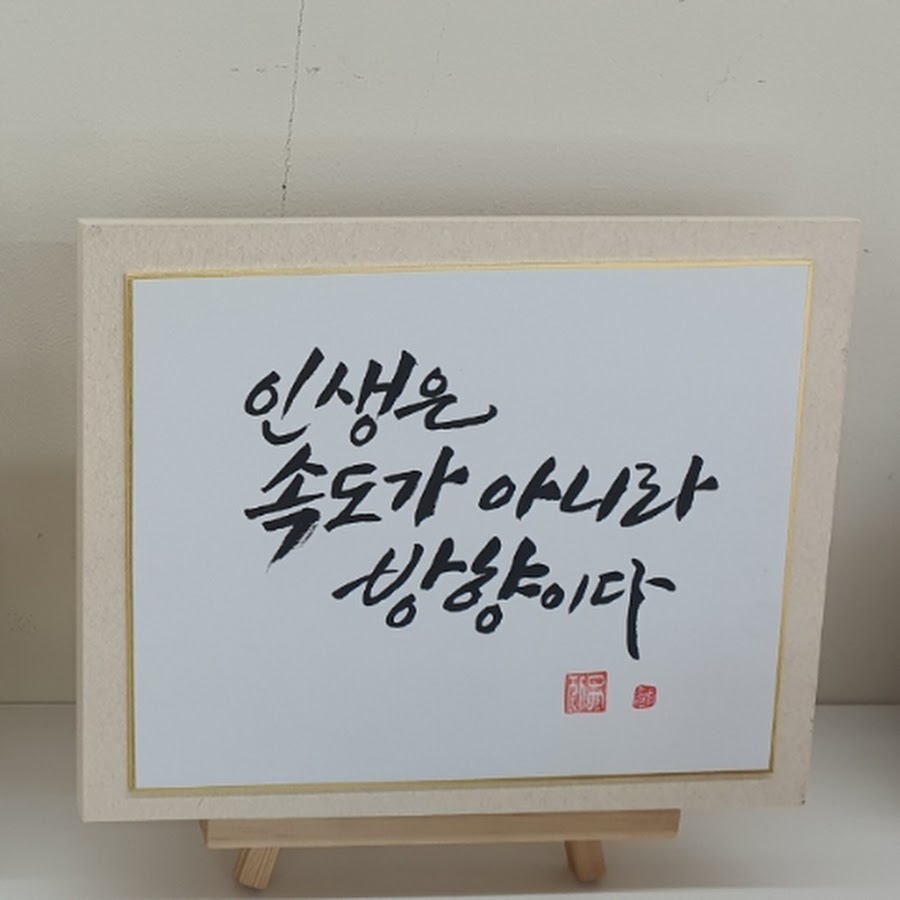 인생은
속도가 아니라
방향이다